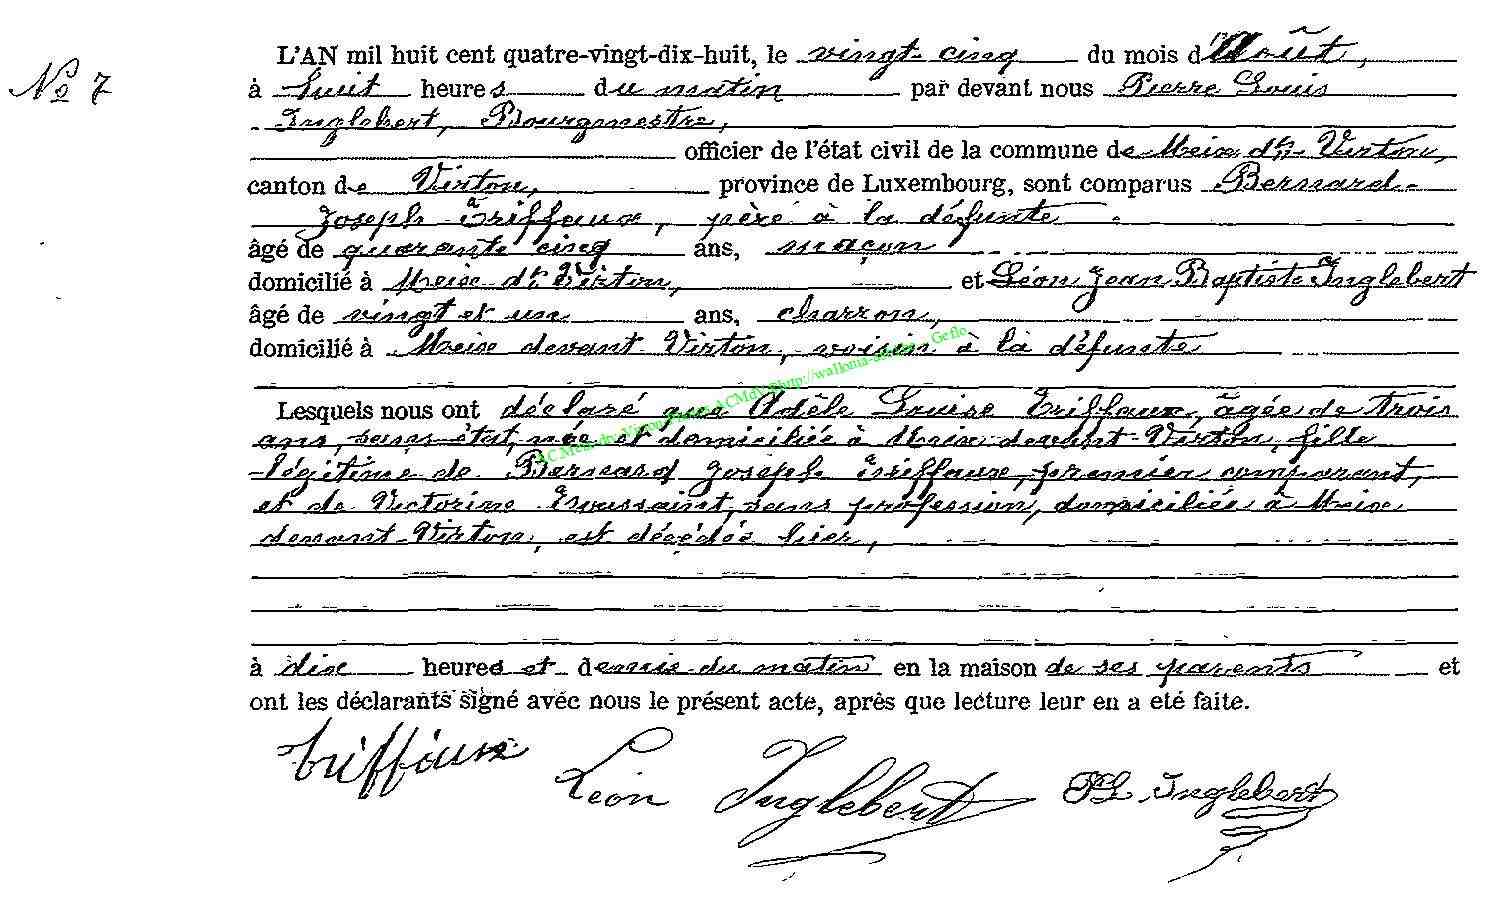 No 7
L'AN mil huit cent quatre-vingt-dix-huit, le vingt-cinq du mois d'Août,
à huit heures du matin par devant nous Pierre Louis
Inglebert, Bourgmestre,
officier de l'état civil de la commune de Meix dt Virton,
canton de Virton, province de Luxembourg, sont comparus Bernard
Joseph Triffaux, père à la défunte
âgé de quarante cinq ans, maçon
domicilié à Meix dt Virton, et Léon Jean Baptiste Inglebert
âgé de vingt et un ans, charron,
domicilié à Meix devant Virton, voisin à la défunte
Lesquels nous ont déclaré que Adèle Louise Triffaux, âgée de trois
ans, sans état, née et domiciliée à Meix-devant-Virton, fille
légitime de Bernard Joseph Triffaux, premier comparant,
et de Victorine Toussaint, sans profession, domiciliée à Meix
devant-Virton, est décédée hier,
à dix heures et demie du matin en la maison de ses parents et
ont les déclarants signé avec nous le présent acte, après que lecture leur en a été faite.
Triffaux Léon Inglebert PL Inglebert